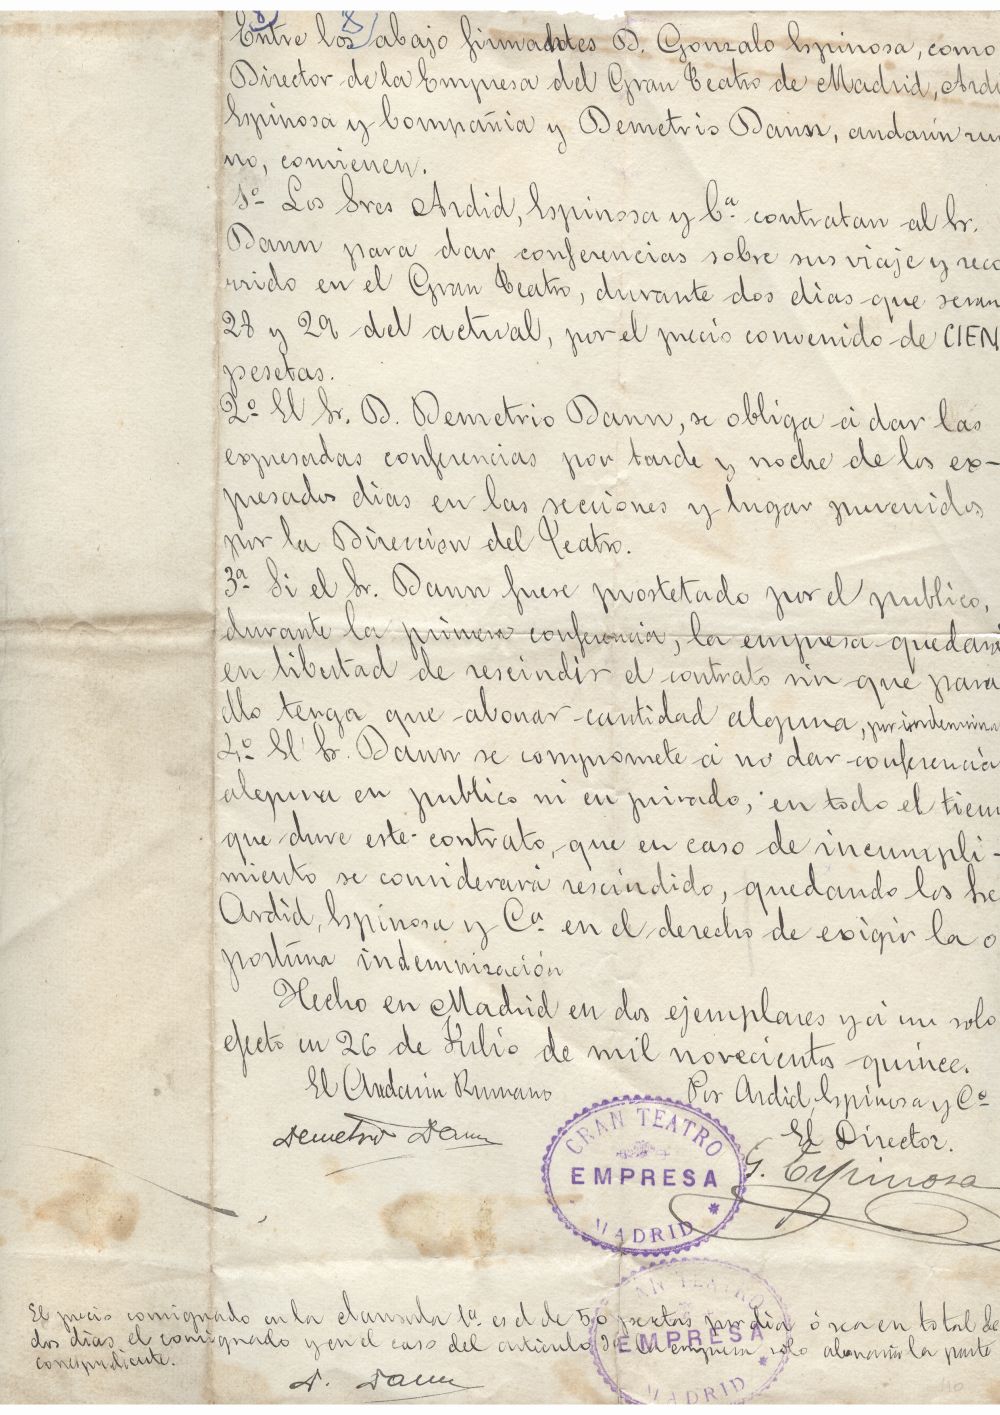 8 8
Entre los abajo firmantes D. Gonzalo Espinosa, como
Director de la Empresa del Gran Teatro de Madrid, Ardi
Espinosa y Compañia y Demetrio Dann, andarin ru
no, convienen.
1º Los Sres Ardid, Espinosa y Cª contratan al Sr.
Dann para dar conferencias sobre sus viaje y reco
rrido en el Gran Teatro, durante dos dias que seran
28 y 29 del actual, por el precio convenido de CIEN
pesetas.
2º El Sr. D. Demetrio Dann, se obliga á dar las
expresadas conferencias por tarde y noche de los ex-
presados dias en las secciones y lugar prevenidos
por la Direccion del Teatro.
3ª Si el Sr. Dann fuese prostetado por el publico,
durante la primera conferencia, la empresa quedará
en libertad de rescindir el contrato sin que para
ello tenga que abonar cantidad alguna, por indemniza
4º El Sr. Dann se compromete á no dar conferencia
alguna en publico ni en privado, en todo el tiem
que dure este contrato, que en caso de incumpli-
miento se considerará rescindido, quedando los Sre
Ardid, Espinosa y Cª en el derecho de exigir la o
portuna indemnización
Hecho en Madrid en dos ejemplares y á un solo
efecto en 26 de Julio de mil novecientos quince.
El Andarin Rumano Por Ardid, Espinosa y Cª
Demetrio Dann El Director.
G. Espinosa
GRAN TEATRO
EMPRESA
MADRID
El precio consignado en la clausula 1ª es el de 50 pesetas por dia ó sea en total de
dos dias el consignado y en el caso del articulo 3º la empresa solo abonará la parte
correspondiente.
GRAN TEATRO
EMPRESA
MADRID
D. Dann